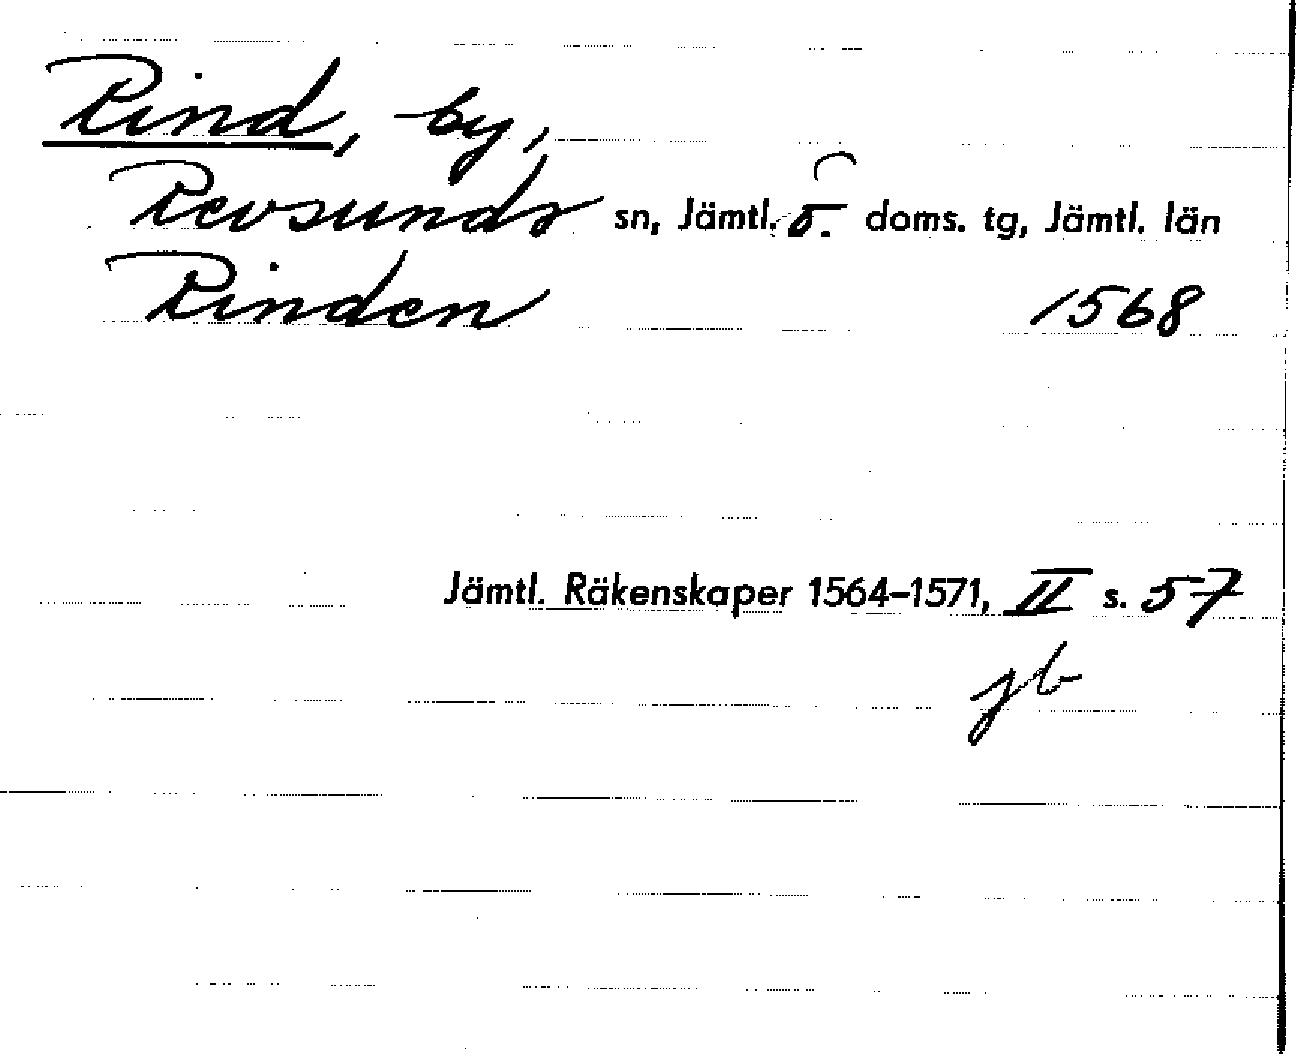 Rind, by,
Revsunds sn, Jämtl. ö. doms. tg, Jämtl. län
Rinden 1568
Jämtl. Räkenskaper 1564–1571, II s. 57
jb